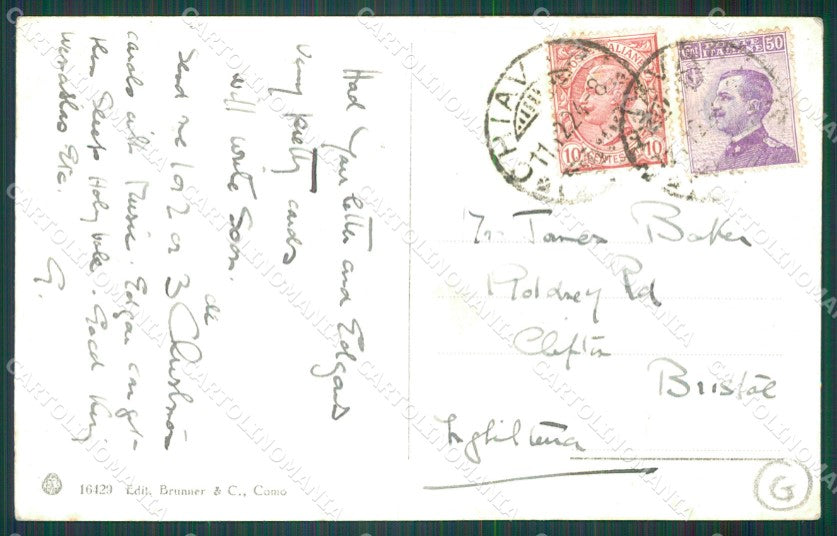 Had your letter and Edgars
Very pretty cards
will write soon.
Send me 1 or 2 or 3 Christmas
de
cards with Music. Edgar can get
them Sleep Holy babe. Good King
Wenceslas Etc.
G.
Mr James Baker
Rodney Rd
Clifton
Bristol
Inghilterra
CHIAV
10 10
50
16429 Edit. Brunner & C., Como
G
CARTOLINOMANIA